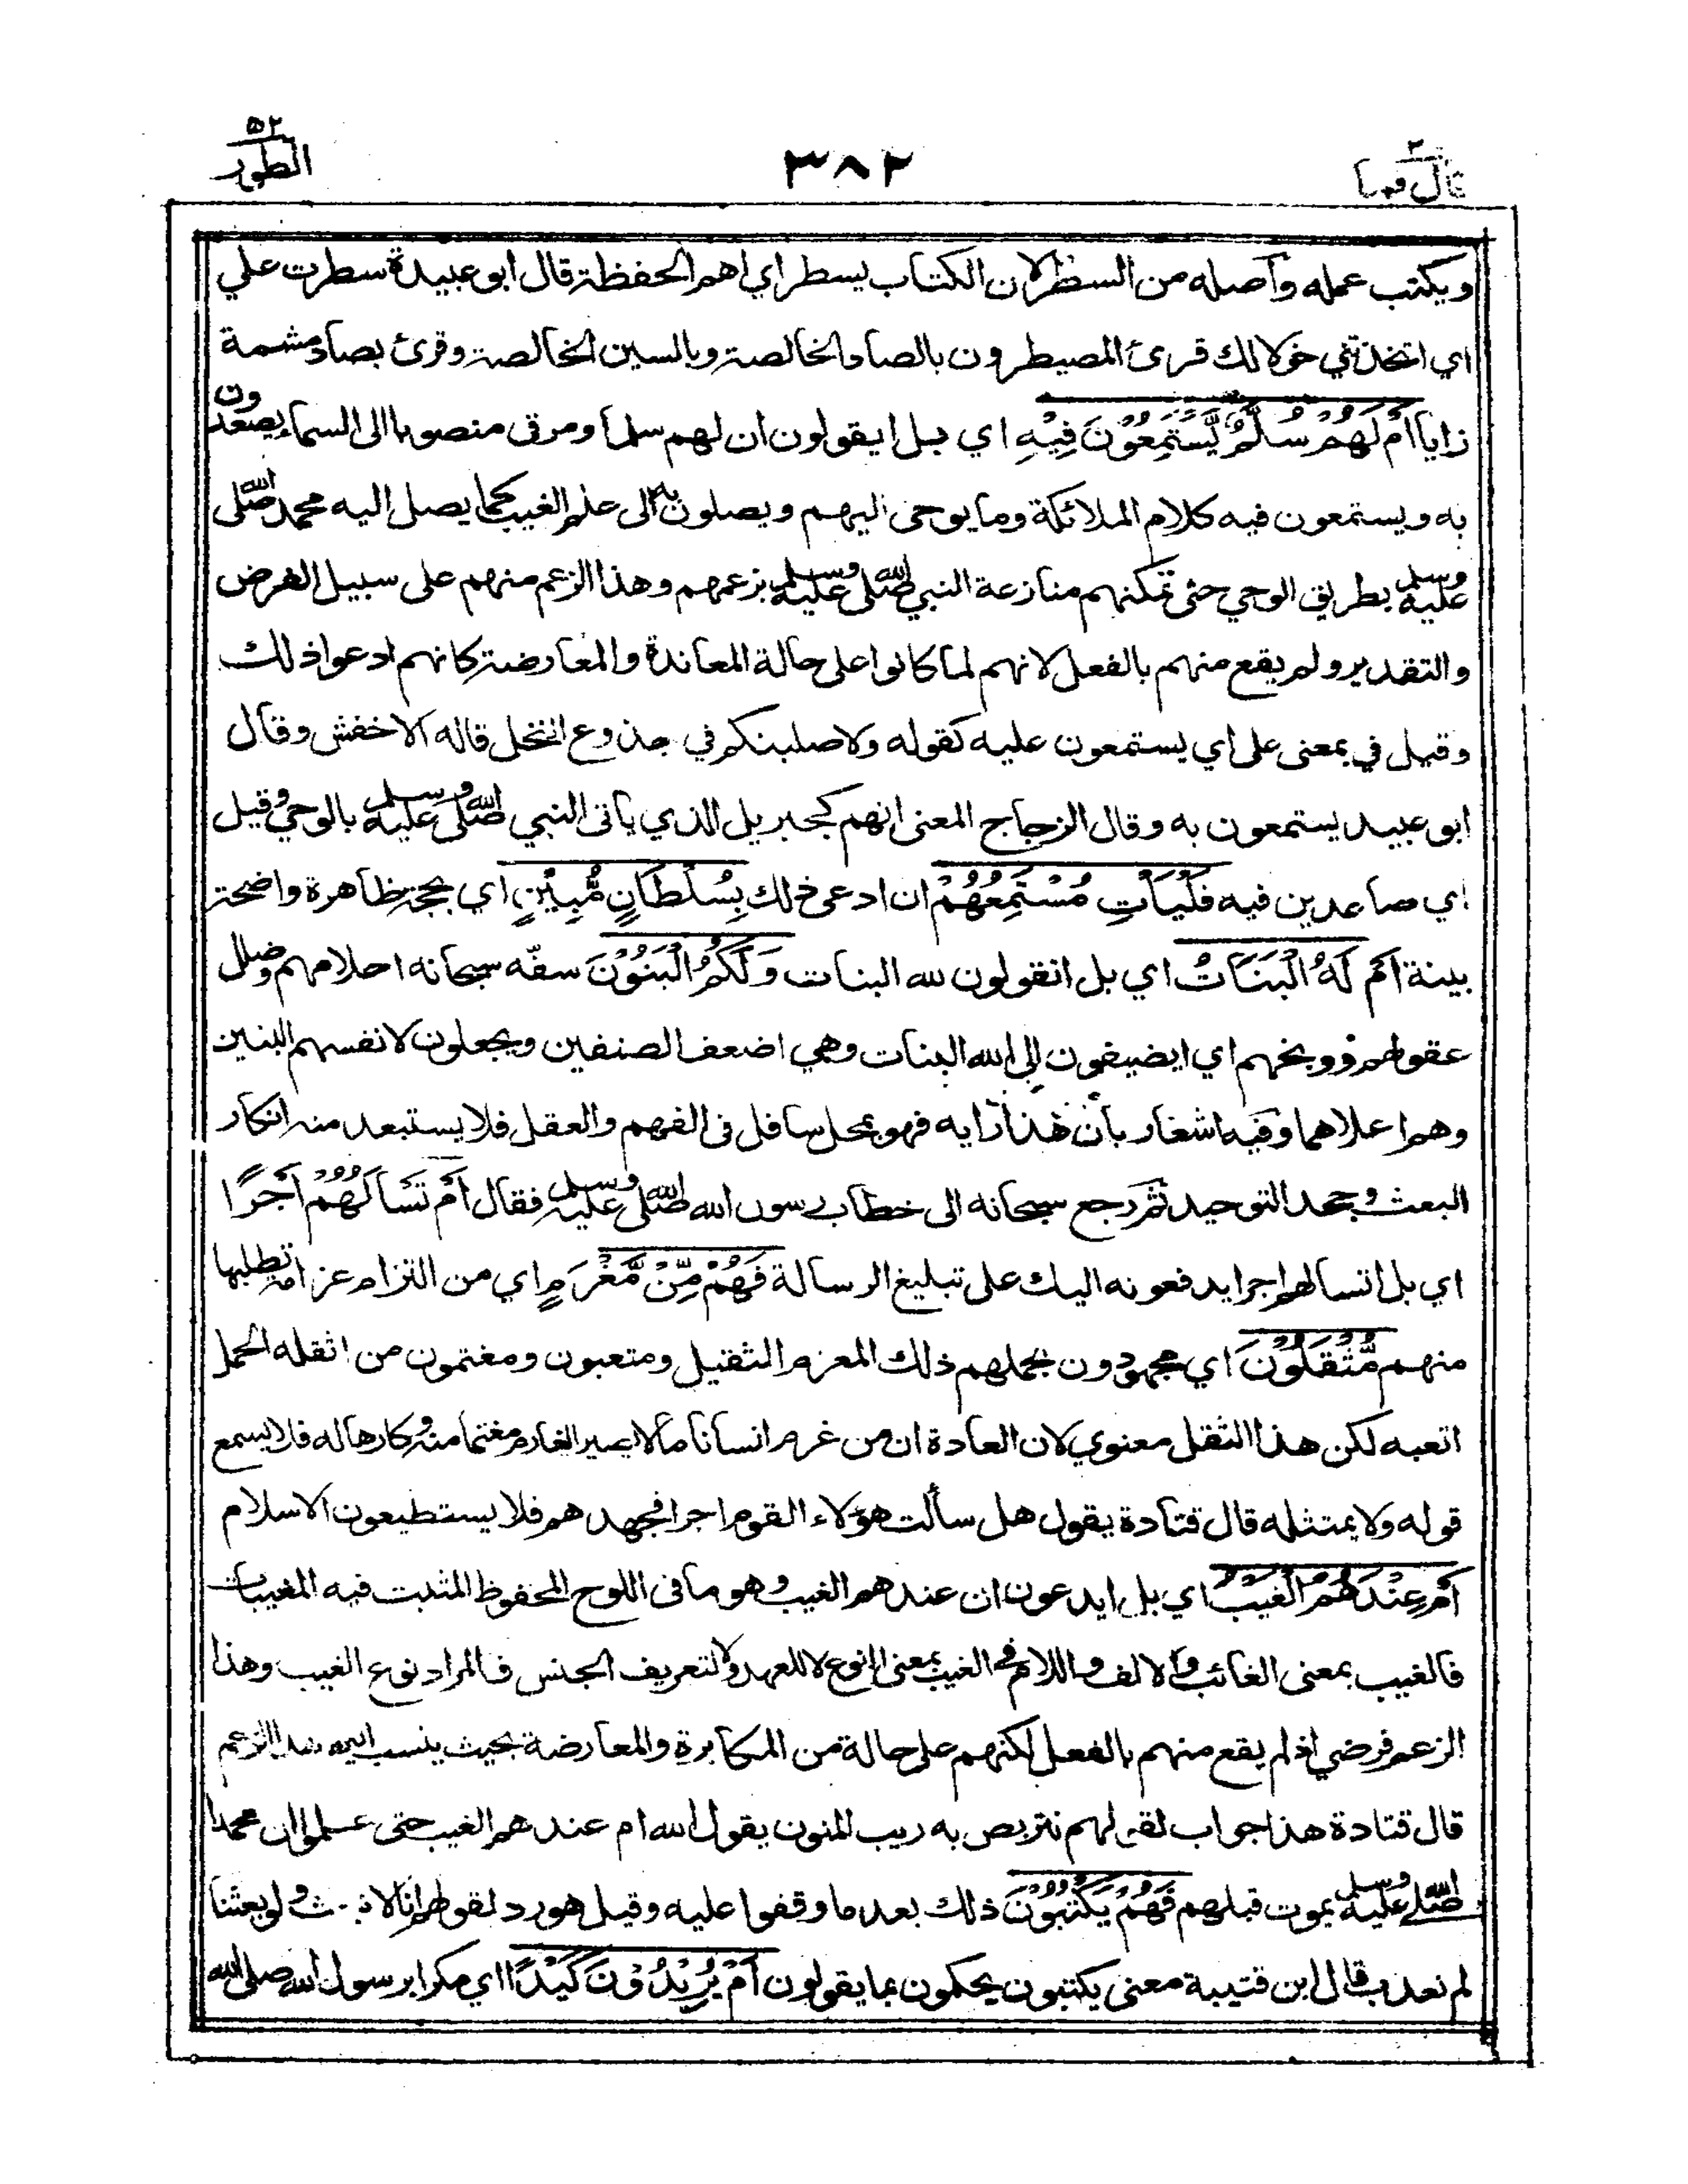 ٥٢
الطور
٣٨٢
٢
قال فما
ويكتب عمله وأصله من السطر لان الكتاب يسطر اي اهم الحفظة قال ابو عبيدة سطرت علي
اي اتخذتني خولا لك قرئ المصيطرون بالصاد الخالصة وبالسين الخالصة وقرئ بصاد مشمة
زايا أَمْ لَهُمْ سُلَّمٌ يَّسْتَمِعُوْنَ فِيْهِ اي بل ايقولون ان لهم سلما ومرقى منصوبا الى السماء يصعدون
به ويستمعون فيه كلام الملائكة وما يوحى اليهم ويصلون به الى علم الغيب كما يصل اليه محمد صلى الله
عليه وسلم بطريق الوحي حتى تمكنهم منازعة النبي صلى الله عليه وسلم بزعمهم وهذا الزعم منهم على سبيل الفرض
والتقدير ولم يقع منهم بالفعل لانهم لما كانوا على حالة المعاندة والمعارضة كانهم ادعوا ذلك
وقيل في بمعنى على اي يستمعون عليه كقوله ولاصلبنكم في جذوع النخل قاله الاخفش وقال
ابو عبيد يستمعون به وقال الزجاج المعنى انهم كجبريل الذي ياتى النبي صلى الله عليه وسلم بالوحي وقيل
اي صاعدين فيه فَلْيَأْتِ مُسْتَمِعُهُمْ ان ادعى ذلك بِسُلْطَانٍ مُّبِيْنٍ اي بحجة ظاهرة واضحة
بينة اَمْ لَهُ الْبَنَاتُ اي بل اتقولون لله البنات وَلَكُمُ الْبَنُوْنَ سفّه سبحانه احلامهم وضلل
عقولهم ووبخهم اي ايضيفون الى الله البنات وهي اضعف الصنفين ويجعلون لانفسهم البنين
وهم اعلاهما وفيه اشعار بأن هذا رايه فهو بمحل سافل فى الفهم والعقل فلا يستبعد منه انكار
البعث وجحد التوحيد ثم رجع سبحانه الى خطاب رسول الله صلى الله عليه وسلم فقال أَمْ تَسْأَلُهُمْ أَجْرًا
اي بل اتسالهم اجرا يدفعونه اليك على تبليغ الرسالة فَهُمْ مِّنْ مَّغْرَمٍ اي من التزام غرامة تطلبها
منهم مُّثْقَلُوْنَ اي مجهودون بحملهم ذلك المغرم الثقيل ومتعبون ومغتمون من اثقله الحمل
اتعبه لكن هذا الثقل معنوي لان العادة ان من غرم انسانا مالا يصير الغارم مغتما منه وكارها له فلا يسمع
قوله ولا يمتثله قال قتادة يقول هل سألت هؤلاء القوم اجرا فجهدهم فلا يستطيعون الاسلام
أَمْ عِنْدَهُمُ الْغَيْبُ اي بل ايدعون ان عندهم الغيب وهو ما فى اللوح المحفوظ المثبت فيه المغيبات
فالغيب بمعنى الغائب والالف واللام في الغيب بمعنى النوع لا للعهد ولا لتعريف الجنس فالمراد نوع الغيب وهذا
الزعم فرضي اذ لم يقع منهم بالفعل لكنهم على حالة من المكابرة والمعارضة بحيث ينسب اليهم هذا الزعم
قال قتادة هذا جواب لقولهم نتربص به ريب المنون يقول الله ام عندهم الغيب حتى علموا ان محمدا
صلى الله عليه وسلم يموت قبلهم فَهُمْ يَكْتُبُوْنَ ذلك بعد ما وقفوا عليه وقيل هو رد لقولهم انا لا نبعث ولو بعثنا
لم نعذب قال ابن قتيبة معنى يكتبون يحكمون بما يقولون أَمْ يُرِيْدُوْنَ كَيْدًا اي مكرا برسول الله صلى الله